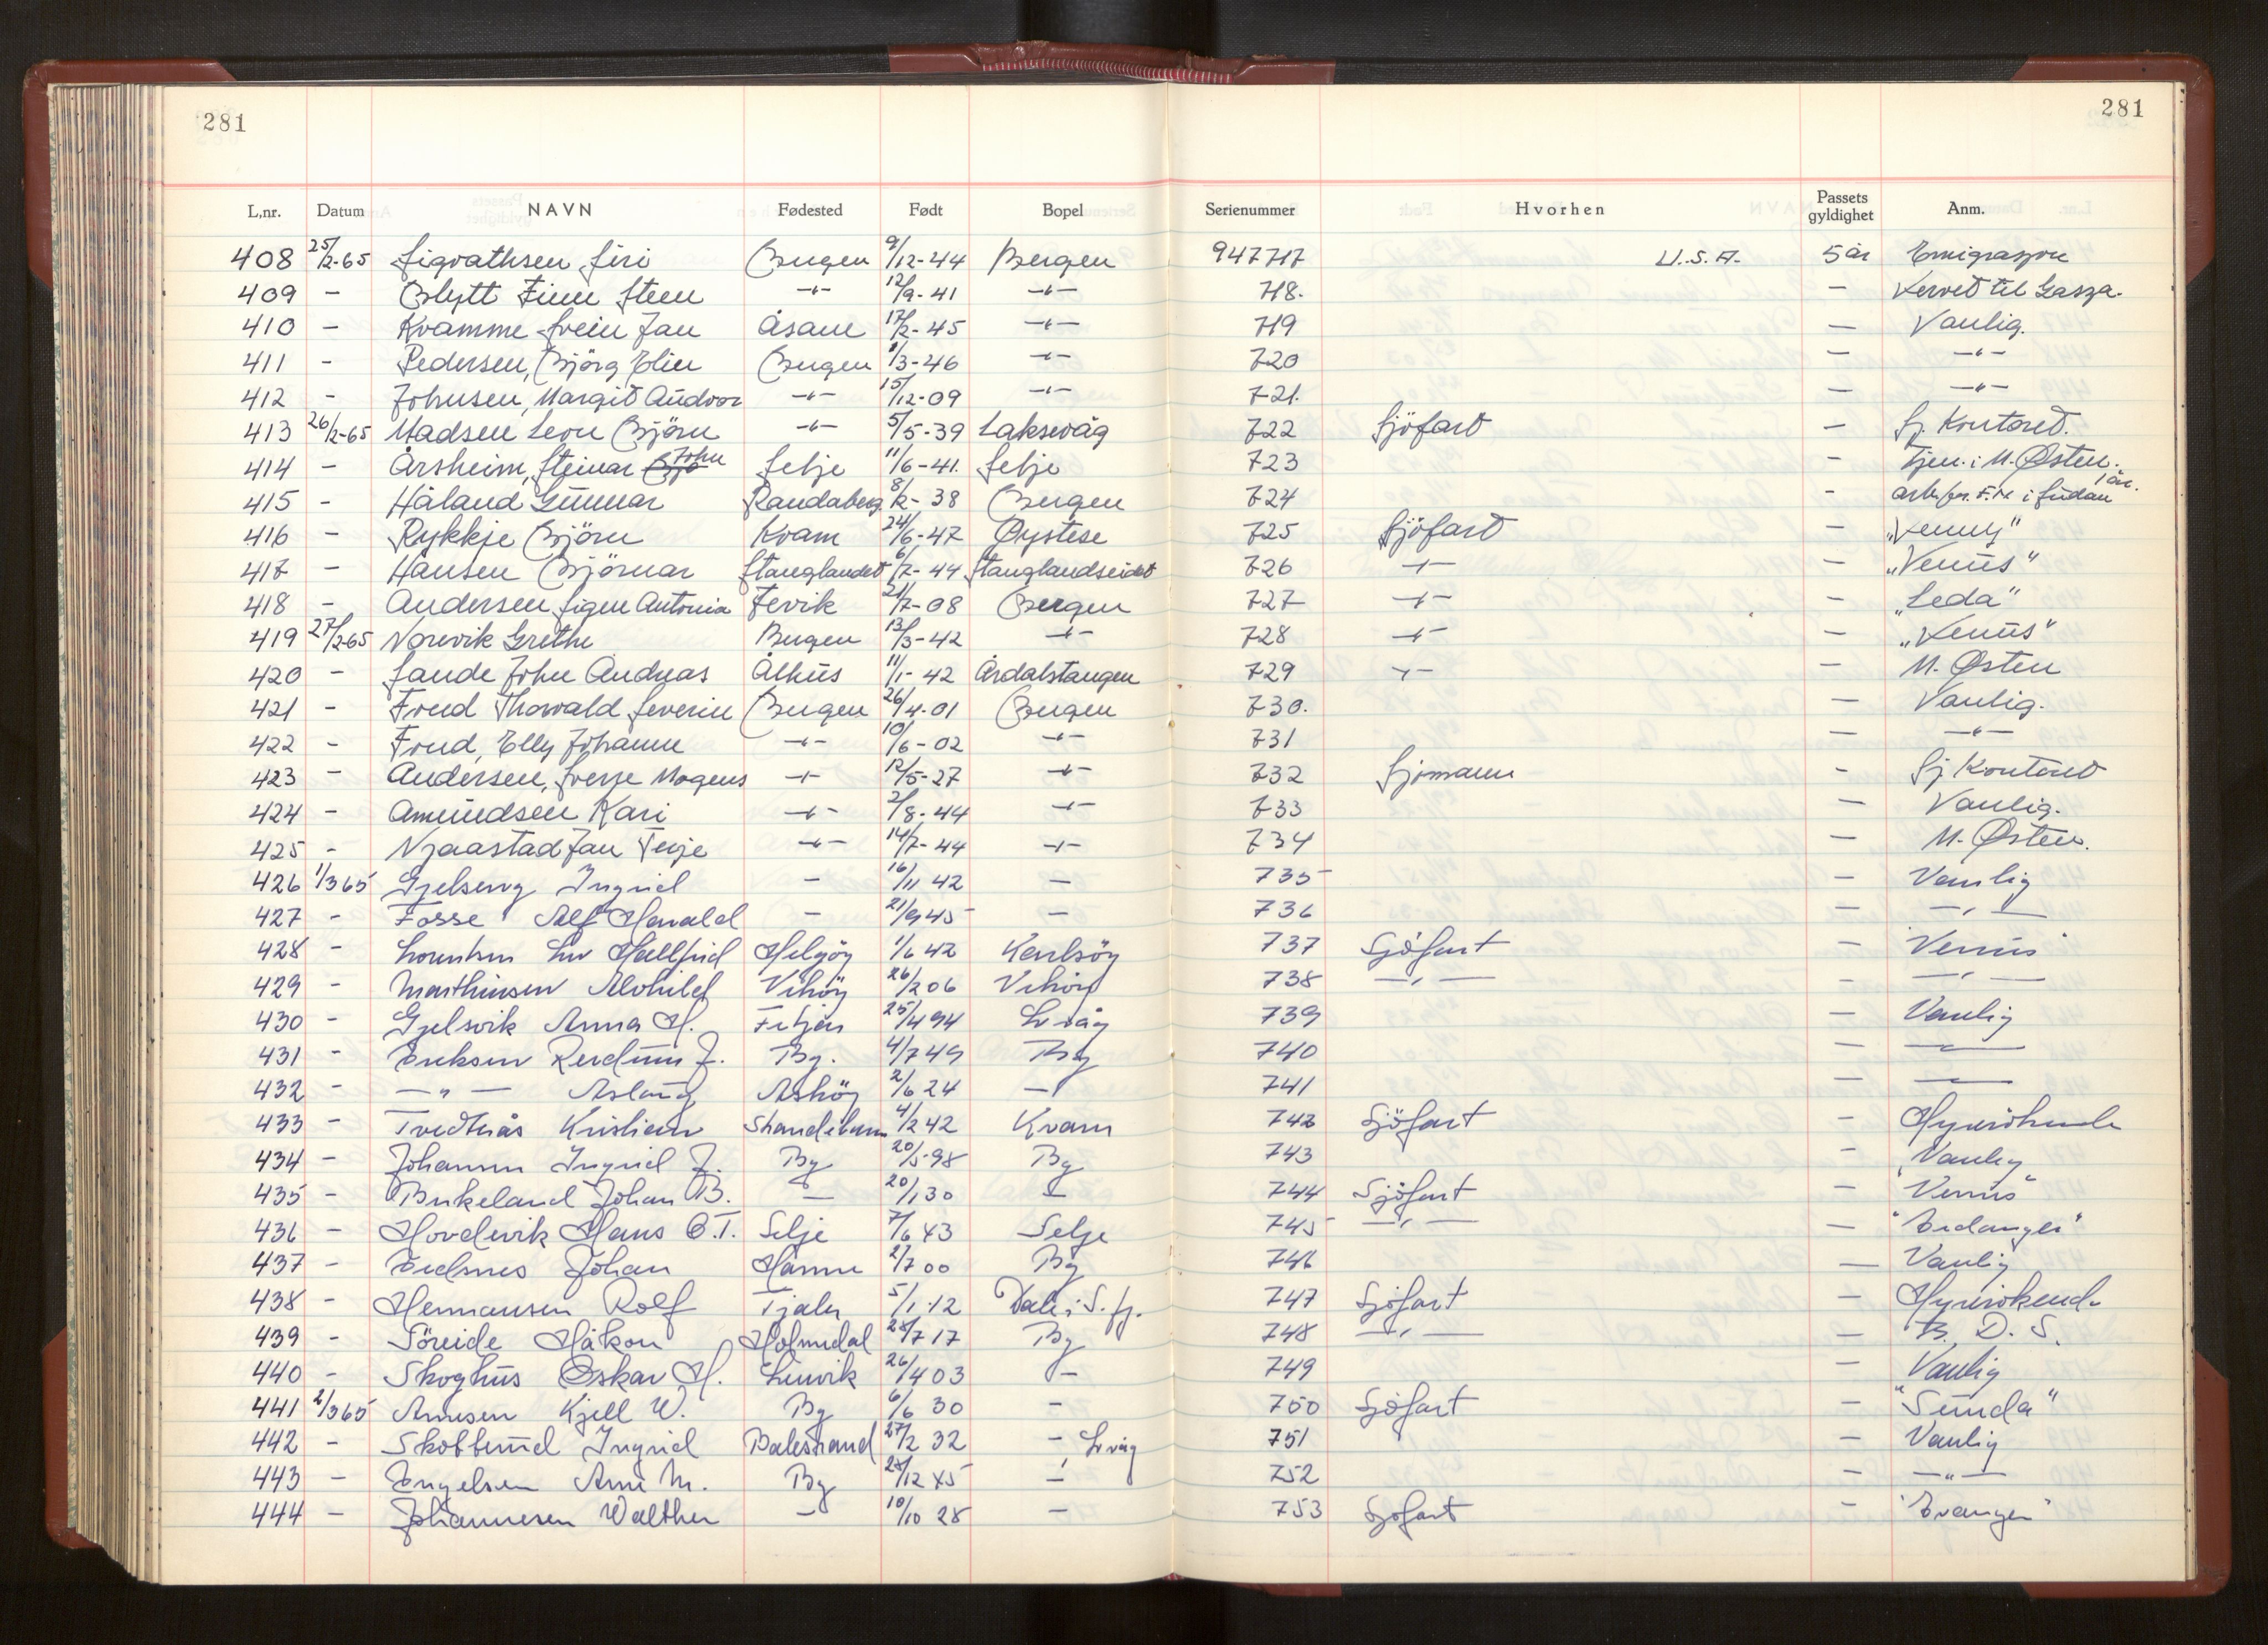 281 281
L,nr. Datum NAVN Fødested Født Bopel Serienummer Hvorhen Passets gyldighet Anm.
408 25/2-65 Sigvathsen Siri Bergen 9/12-44 Bergen 947717 U.S.A. 5 år Emigrasjon
409 - Blytt Finn Steen -"- 12/9-41 -"- 718. - Vervet til Gasza.
410 - Kvamme Svein Jan Åsane 17/2-45 -"- 719 - Vanlig.
411 - Pedersen, Björg Elin Bergen 1/3-46 -"- 720 - -"-
412 - Johnsen, Margit Audvor -"- 15/12-09 -"- 721. - -"-
413 26/2-65 Madsen Leon Björn -"- 5/5-39 Laksevåg 722 Sjöfart - Sj. Kontoret.
414 - Årsheim, Steinar John Selje 11/6-41. Selje 723 - Tjen. i M. Østen.
415 - Håland Gunnar Randaberg 8/2-38 Bergen 724 - i Sudan 1 år.
416 - Rykkje Björn Kvam 24/6-47 Øystese 725 Sjöfart -
417 - Hansen Björnar Stanglandet 6/7-44 Stanglandseidet 726 -"- - "Venus"
418 - Andersen Signe Antonia Fevik 21/7-08 Bergen 727 -"- - "Leda"
419 27/2-65 Norevik Grethe Bergen 13/3-42 -"- 728 -"- - "Venus"
420 - Sande John Andreas Ålhus 11/1-42 Årdalstangen 729 -"- - M. Østen
421 - Frud Thorvald Severin Bergen 26/4-01 Bergen 730. - Vanlig.
422 - Frud, Elly Johanne -"- 10/6-02 -"- 731 - -"-
423 - Andersen, Sverre Mogens -"- 12/5-27 -"- 732 Sjömann - Sj. Kontoret
424 - Amundsen Kari -"- 2/8-44 -"- 733 - Vanlig.
425 - Njaastad Jan Terje -"- 14/7-44 -"- 734 - M. Østen.
426 1/3 65 Ingrid - 16/11 42 - 735 - Vanlig
427 - Fosse Alf Harald - 21/9 45 - 736 - -"-
428 - Lorentsen Liv Hallfrid Helgöy 1/6 42 Karlsöy 737 Sjöfart - "Venus"
429 - Marthinsen Alvhild Vihöy 26/2 06 Vihöy 738 -"- - -"-
430 - Gjelsvik Anna H. Fitjar 25/4 94 L våg 739 - Vanlig
431 - Eriksen Reidunn J. Bg. 4/7 49 Bg 740 - -"-
432 - -"- Aslaug Asköy 2/6 24 - 741 - -"-
433 - Tvedtnås Kristian Strandebarm 4/2 42 Kvam 742 Sjöfart - Hyrerökende
434 - Johansen Ingrid J. Bg 20/5-98 Bg 743 - Vanlig
435 - Birkeland Johan B. - 20/1 30 - 744 Sjöfart - "Venus"
436 - Hovdevik Hans O.T. Selje 7/6 43 Selje 745 -"- - "Ardanger"
437 - Eidsnes Johan Hamre 2/7 00 Bg 746 - Vanlig
438 - Hermansen Rolf Fjaler 5/1-12 Dale i S. fj. 747 Sjöfart - Hyrerökende
439 - Söreide Håkon Holmedal 28/7 17 Bg 748 -"- - B. D. S.
440 - Skoghus Oskar H. Leirvik 26/4 03 - 749 - Vanlig
441 2/3 65 Arnesen Kjell W. Bg 6/6 30 - 750 Sjöfart - "Sunda"
442 - Ingrid Balestrand 27/2 32 - L våg 751 - Vanlig
443 - Engelsen Arne M. Bg 28/12 45 - 752 - -"-
444 - Johannesen Walther - 10/10 28 - 753 Sjöfart - "Evanger"